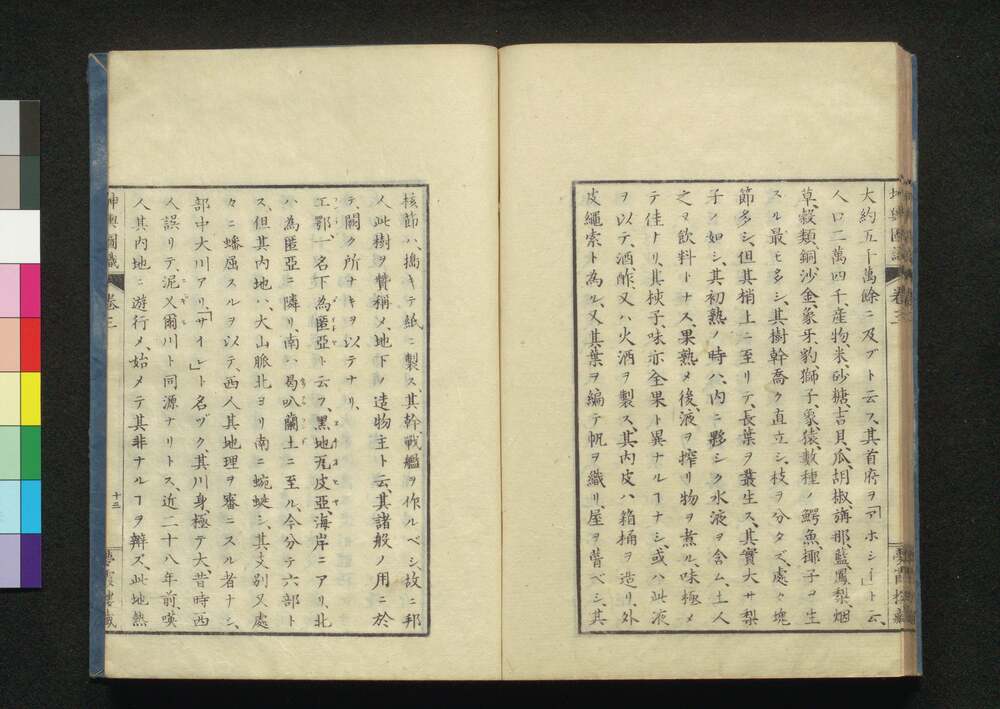 坤輿圖識
卷三
大約五十萬餘ニ及ブト云フ、其首府ヲ「アホシイ」ト云、
人口二萬四千、産物、米、砂糖、吉貝、瓜、胡椒、藍、鳳梨、烟
草、穀類、銅、沙金、象牙、豹、獅子、象、猿、數種ノ鰐魚、椰子ヲ生
スル最ヒ多シ、其樹幹喬ク直立シ、枝ヲ分タズ、處々塊
節多シ、但其梢上ニ至リテ、長葉ヲ叢生ス、其實大サ梨
子ノ如シ、其初熟ノ時ハ、内ニ夥シク水液ヲ含ム、土人
之ヲ飲料トナス、果熟メ後、液ヲ搾リ物ヲ煮ル、味極メ
テ佳トリ、其挾子、味亦全果ト異ナルヿナシ、或ハ此液
ヲ以テ、酒酢、又ハ火酒ヲ製ス、其内皮ハ箱桶ヲ造リ、外
皮繩索ト為ル、又其葉ヲ編テ帆ヲ織リ、屋ヲ葺ベシ、其
夢霞樓藏
核節ハ、搗キテ紙ニ製ス、其幹戰艦ヲ作ルベシ、故ニ邦
人此樹ヲ贊稱メ、地下ノ造物主ト云、其諸般ノ用ニ於
テ、闕ク所ナキヲ以テナリ、
工鄂一名下為匿亞ト云フ、黒地兀皮亞海岸ニアリ、北
ハ為匿亞ニ隣リ、南ハ曷叭蘭土ニ至ル、今分テ六部ト
ス、但其内地ハ、大山脈北ヨリ南ニ蜿蜒シ、其支別又處
々ニ蟠屈スルヲ以テ、西人其地理ヲ審ニスル者ナシ、
部中大川アリ、「サイレ」ト名ヅク、其川身極テ大、昔時西
人誤リテ、泥又爾川ト同源ナリトス、近二十八年前、嘆
人其内地ニ遊行メ、始メテ其非ナルヿヲ辨ズ、此地熱
坤輿圖識
卷三
十三
夢霞樓藏